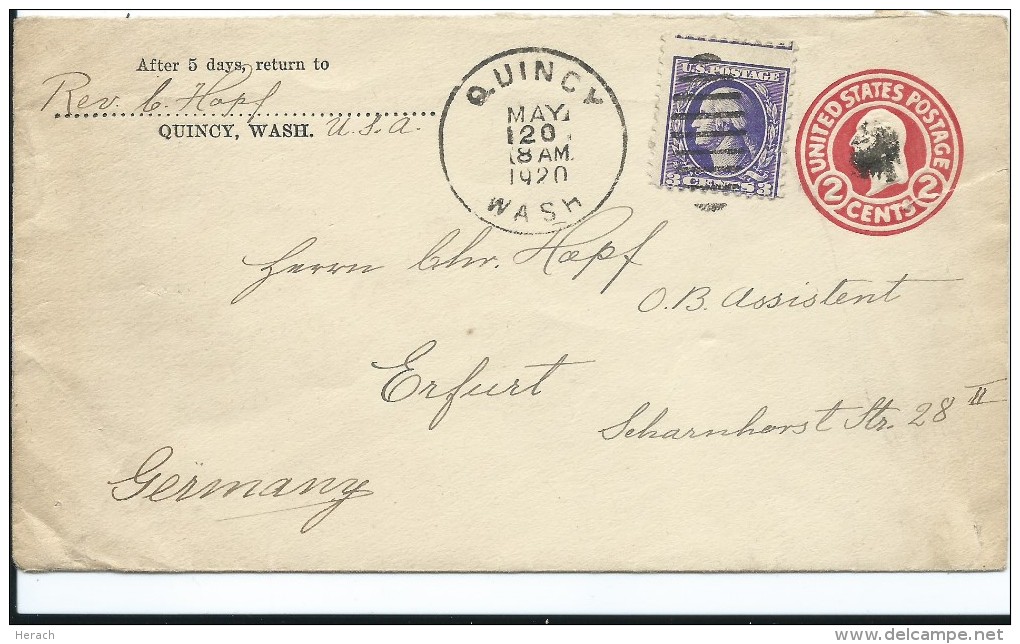 After 5 days, return to
Rev. C. Hopf
QUINCY, WASH. U.S.A.
QUINCY
MAY
20
8 AM.
1920
WASH
U.S. POSTAGE
3 CENTS 3
UNITED STATES POSTAGE
2 CENTS 2
Herrn Chr. Hopf
O.B. Assistent
Erfurt
Scharnhorst Str. 28 II
Germany
Herach
www.delcampe.net